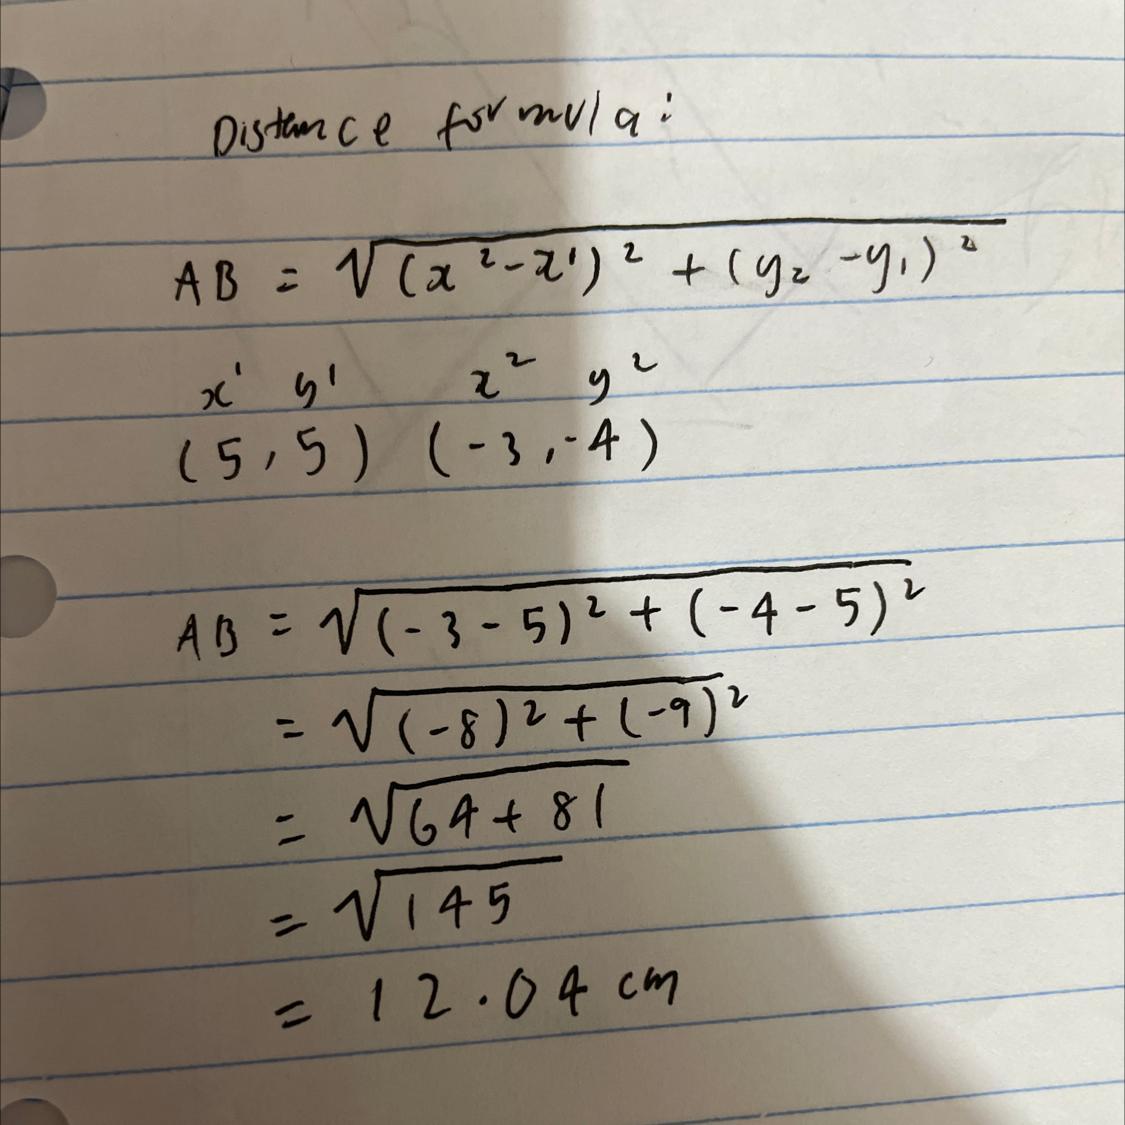 Distance formula:
AB = √(x²-x¹)² + (y₂-y₁)²
x¹ y¹ x² y²
(5,5) (-3,-4)
AB = √(-3-5)² + (-4-5)²
= √(-8)² + (-9)²
= √64+81
= √145
= 12.04 cm